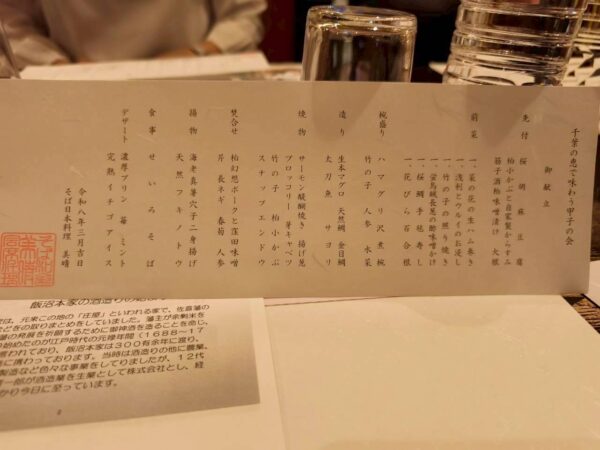 千葉の恵で味わう甲子の会
御献立
先付
桜胡麻豆腐
柏小かぶと自家製からすみ
筋子酒粕味噌漬け 大根
前菜
一、菜の花の生ハム巻き
一、浅利とウルイのお浸し
一、竹の子の照り焼き
一、蛍烏賊長葱の酢味噌かけ
一、桜鯛手毬寿し
一、花びら百合根
椀盛り
ハマグリ沢煮椀
竹の子 人参 水菜
造り
生本マグロ 天然鯛 金目鯛
太刀魚 サヨリ
焼物
サーモン醍醐焼き 揚げ茗
ブロッコリー 芽キャベツ
竹の子 柏小かぶ
スナップエンドウ
焚合せ
柏幻想ポークと窪田味噌
芹 長ネギ 春菊 人参
揚物
海老真薯穴子二身揚げ
天然フキノトウ
食事
せいろそば
デザート
濃厚プリン 苺 ミント
完熟イチゴアイス
令和八年三月吉日
そば日本料理 美晴
飯沼本家の酒造りの
は、元来この地の「庄屋」といわれる家で、佐倉藩の
などをの取りまとめをしていました。藩主が余剰米を
の発展を祈願するために御神酒を造ることを命じ、
り始めたのが江戸時代の元禄年間(1688~17
言われており、飯沼本家は300有余年に渡り、
業に携わっております。当時は酒造りの他に農業、
製造など色々な事業をしてりましたが、12代
一郎が酒造業を生業として株式会社とし、経
かり今日に至っています。